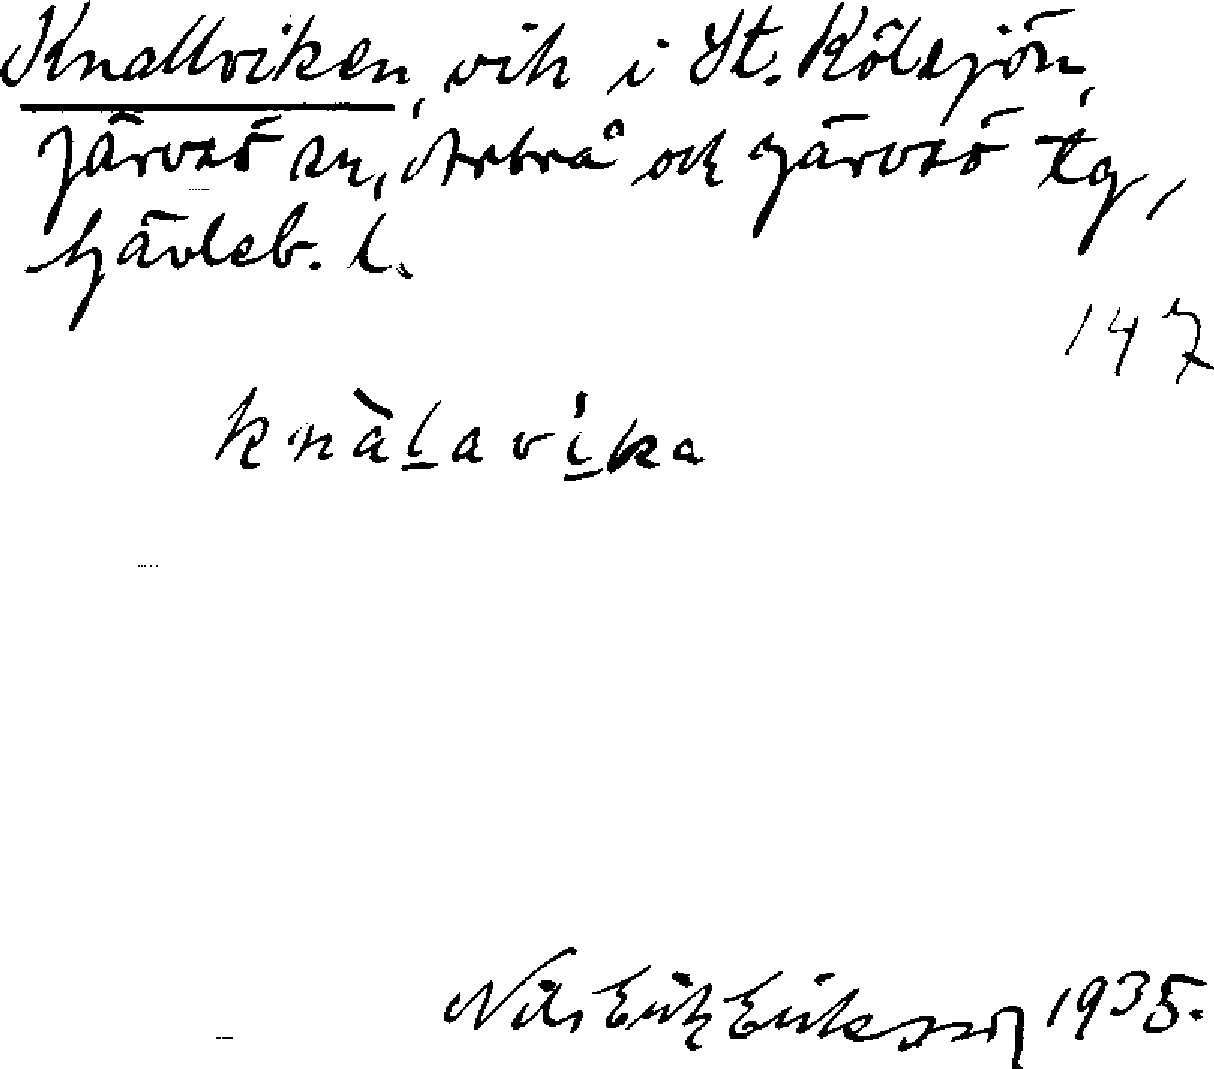 Knallviken, vik i St. Kölsjön,
Järvsö sn, Arbrå och Järvsö tg,
Gävleb. l.
147
knàl̲avi̲ka
Nils Erik Eriksson 1935.